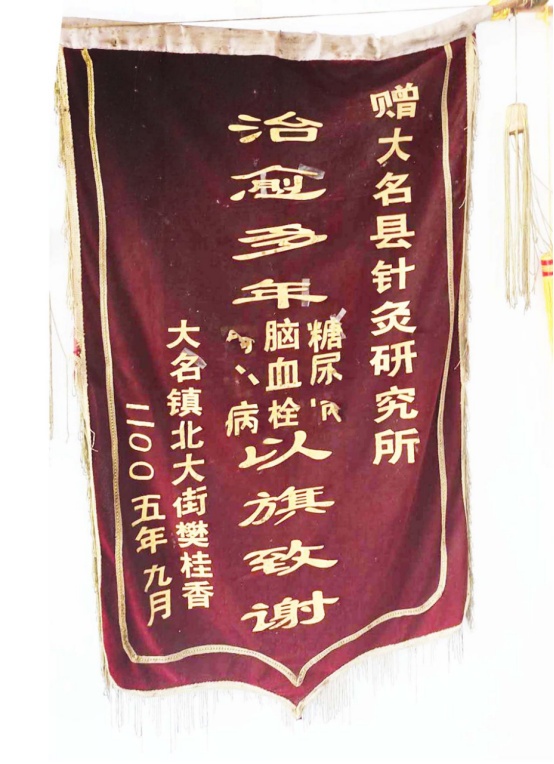 赠大名县针灸研究所
治愈多年
糖尿病
脑血栓
病
以旗致谢
大名镇北大街樊桂香
二〇〇五年九月